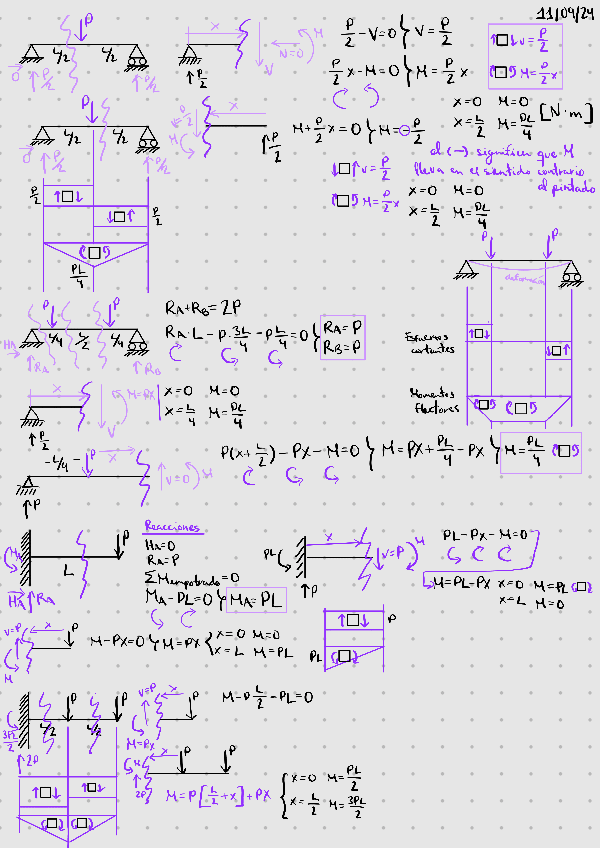 11/09/24
P
L/2 L/2
P/2 P/2
x
P/2
V
N=0
M
P/2 - V=0 } V= P/2
P/2 x - M=0 } M= P/2 x
V= P/2
M= P/2 x
x=0 M=0
x= L/2 M= PL/4 [N·m]
P
L/2 L/2
P/2 P/2
x
P/2
M
P/2
M+ P/2 x=0 } M=- P/2
el (-) significa que M
lleva en el sentido contrario
al pintado
V= P/2
M= P/2 x
x=0 M=0
x= L/2 M= PL/4
P/2
P/2
PL/4
P P
deformación
Esfuerzos
cortantes
Momentos
flectores
P P
L/4 L/2 L/4
HA
RA RB
RA+RB=2P
RA·L - P·3L/4 - P L/4=0 } RA=P
RB=P
x
M=PX
P/2
V
x=0 M=0
x= L/4 M= PL/4
L/4
P
x
V=0
M
P
P(x+ L/2) - PX - M=0 } M=PX+ PL/4 - PX } M= PL/4
Reacciones
HA=0
RA=P
ΣMempotrado=0
MA-PL=0 } MA=PL
MA
P
L
HA RA
x
PL
P
V=P
M
PL-PX-M=0
M=PL-PX x=0 M=PL
x=L M=0
V=P
x
P
M
M-PX=0 } M=PX { x=0 M=0
x=L M=PL
P
PL
P P
L/2 L/2
3PL/2
2P
V=P
x
P
M=PX
M-P L/2 - PL=0
x
P P
M
2P
M=P[L/2+x]+PX { x=0 M= PL/2
x= L/2 M= 3PL/2